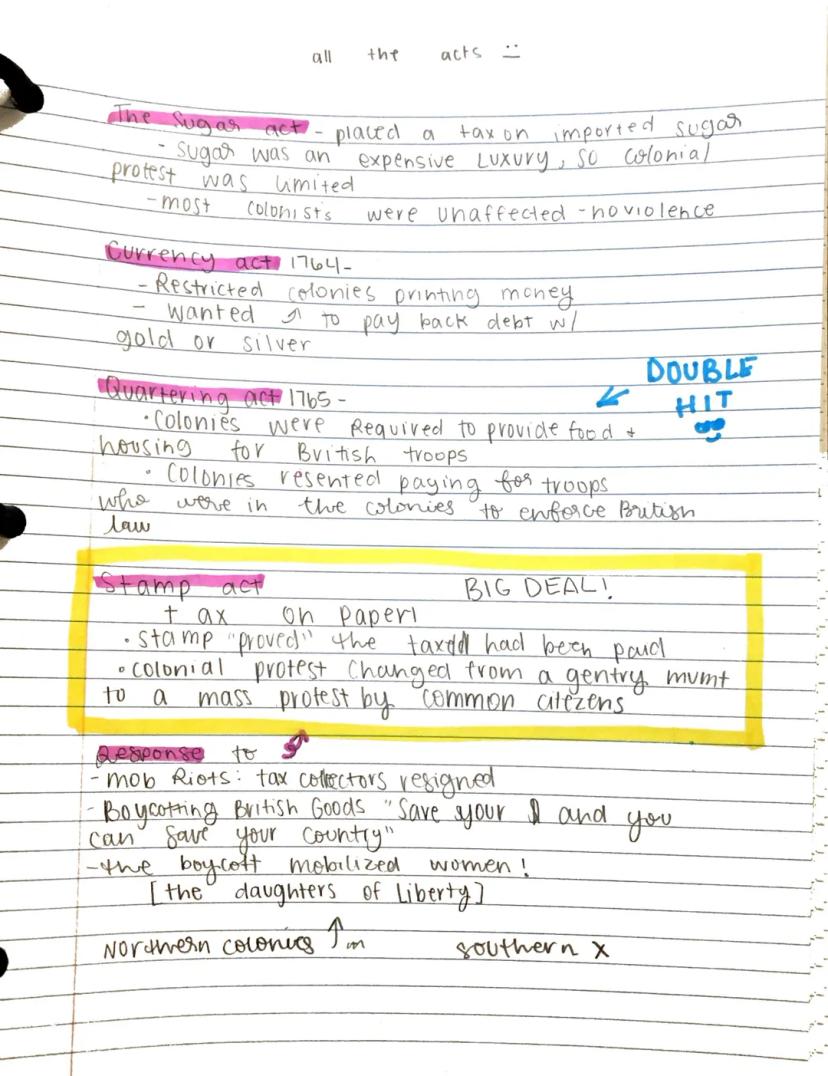 all the acts :|
The Sugar act - placed a tax on imported sugar
- sugar was an expensive luxury, so colonial
protest was limited
- most colonists were unaffected - no violence
Currency act 1764 -
- Restricted colonies printing money
- wanted ↑ to pay back debt w/
gold or silver
Quartering act 1765 -
DOUBLE
HIT
• Colonies were required to provide food +
housing for British troops
• Colonies resented paying for troops
who were in the colonies to enforce British
law
Stamp act BIG DEAL!
tax on paper!
• stamp "proved" the taxdd had been paid
• colonial protest changed from a gentry mvmt
to a mass protest by common citezens
Response to
- mob Riots: tax collectors resigned
- Boycotting British Goods "Save your $ and you
can save your country"
- the boycott mobilized women!
[the daughters of Liberty]
Northern colonies ↑ southern x